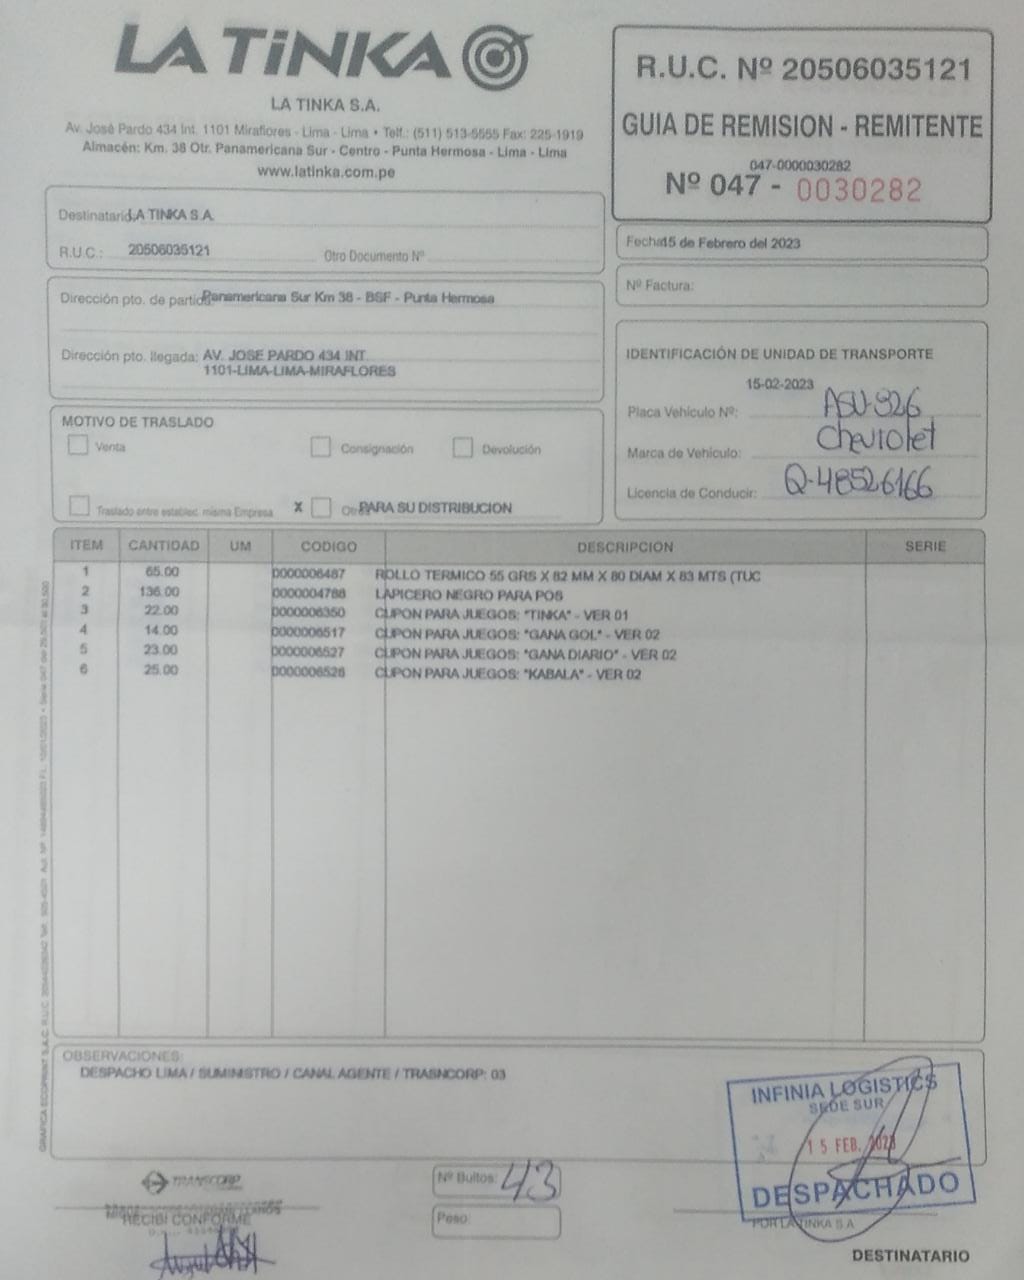 LA TiNKA
LA TINKA S.A.
Av. José Pardo 434 Int. 1101 Miraflores - Lima - Lima • Telf.: (511) 513-5555 Fax: 225-1919
Almacén: Km. 38 Otr. Panamericana Sur - Centro - Punta Hermosa - Lima - Lima
www.latinka.com.pe
R.U.C. Nº 20506035121
GUIA DE REMISION - REMITENTE
047-0000030282
Nº 047 - 0030282
Destinatario LA TINKA S.A.
R.U.C.: 20506035121 Otro Documento Nº
Fecha 15 de Febrero del 2023
Nº Factura:
Dirección pto. de partida Panamericana Sur Km 38 - BSF - Punta Hermosa
Dirección pto. llegada: AV. JOSE PARDO 434 INT.
1101-LIMA-LIMA-MIRAFLORES
IDENTIFICACIÓN DE UNIDAD DE TRANSPORTE
15-02-2023
Placa Vehículo Nº: ASU-926
Marca de Vehículo: Chevrolet
Licencia de Conducir: Q-48526166
MOTIVO DE TRASLADO
Venta Consignación Devolución
Traslado entre establec. misma Empresa X Otros PARA SU DISTRIBUCION
ITEM CANTIDAD UM CODIGO DESCRIPCION SERIE
1 65.00 0000006487 ROLLO TERMICO 55 GRS X 82 MM X 80 DIAM X 83 MTS (TUC
2 136.00 0000004788 LAPICERO NEGRO PARA POS
3 22.00 0000006350 CUPON PARA JUEGOS: "TINKA" - VER 01
4 14.00 0000006517 CUPON PARA JUEGOS: "GANA GOL" - VER 02
5 23.00 0000006527 CUPON PARA JUEGOS: "GANA DIARIO" - VER 02
6 25.00 0000006526 CUPON PARA JUEGOS: "KABALA" - VER 02
OBSERVACIONES:
DESPACHO LIMA / SUMINISTRO / CANAL AGENTE / TRASNCORP: 03
INFINIA LOGISTICS
SEDE SUR
15 FEB. 2023
DESPACHADO
POR LA TINKA S.A
TRANSCORP
RECIBI CONFORME
Nº Bultos: 43
Peso:
DESTINATARIO